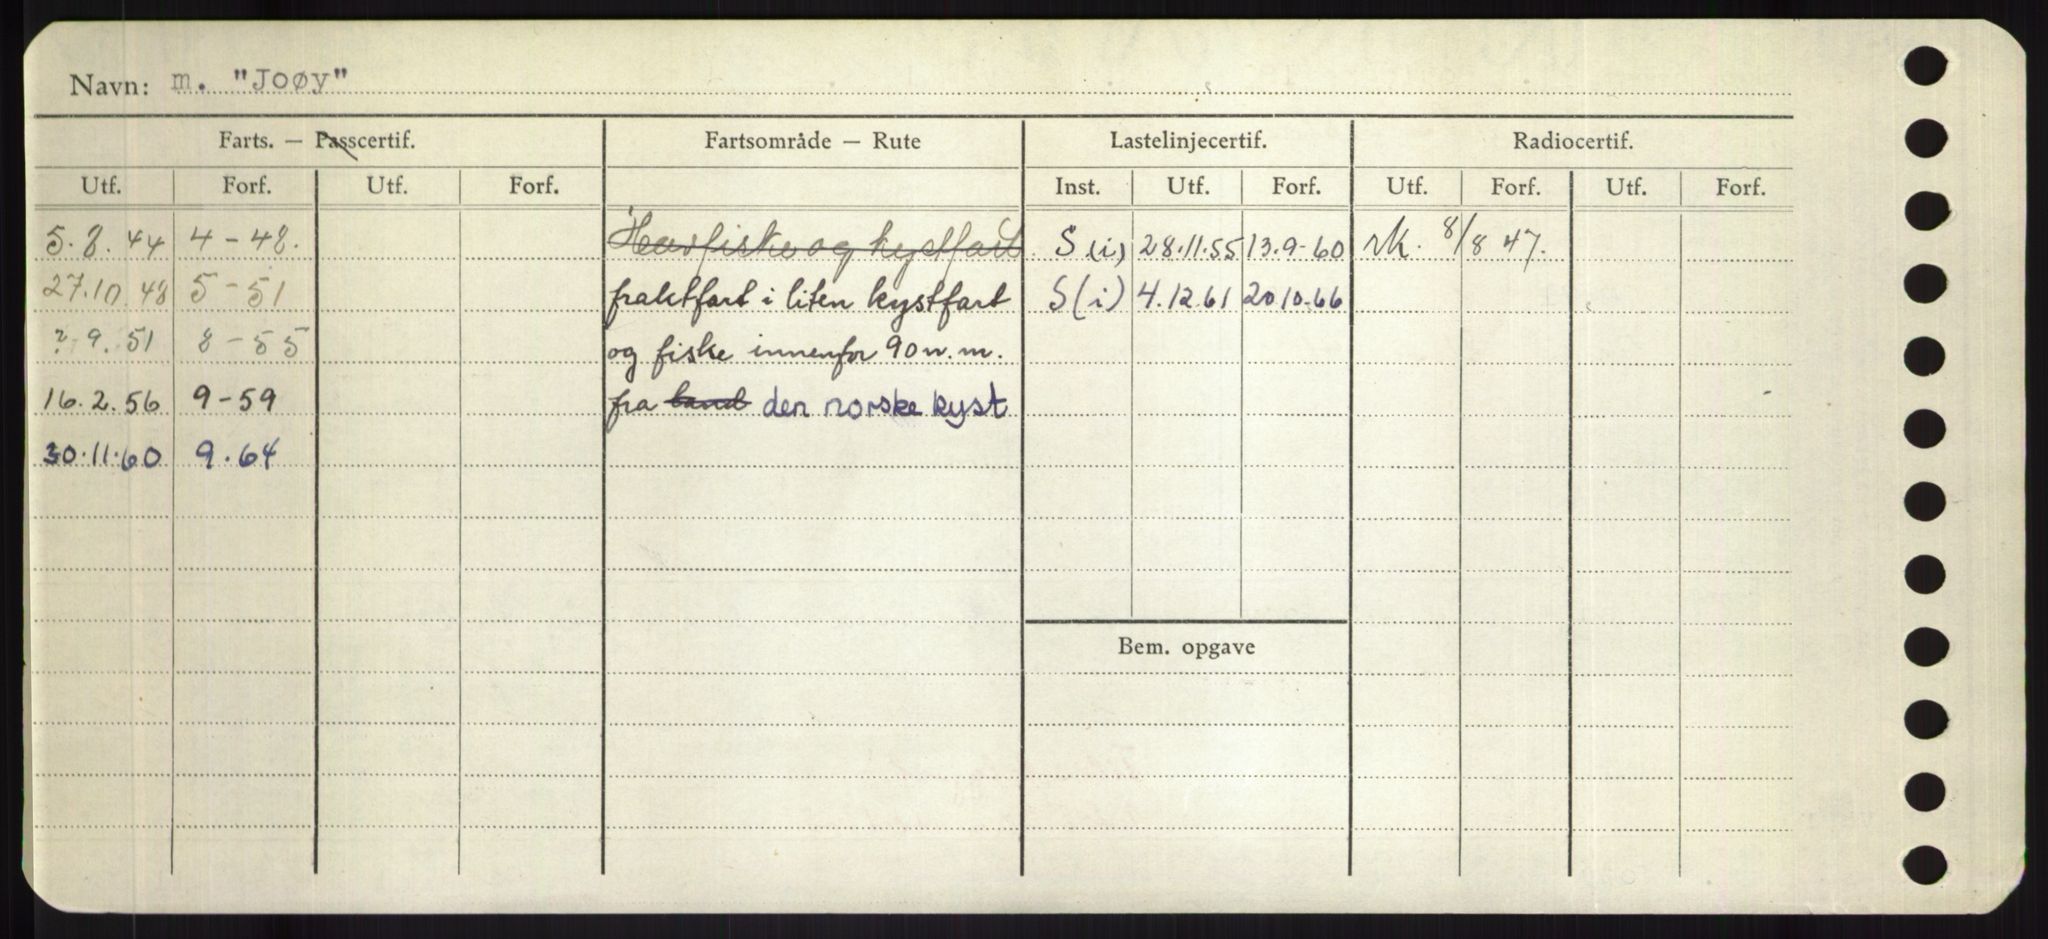 Navn: m. "Joøy"
Farts. — Passcertif. Fartsområde — Rute Lastelinjecertif. Radiocertif.
Utf. Forf. Utf. Forf. Inst. Utf. Forf. Utf. Forf. Utf. Forf.
5.8.44 4-48. Havfiske og kystfart S(i) 28.11.55 13.9-60 rk. 8/8 47.
27.10.48 5-51 fraktfart i liten kystfart S(i) 4.12.61 20.10-66
?.9.51 8-55 og fiske innenfor 90 n.m.
16.2.56 9-59 fra land den norske kyst
30.11.60 9.64
Bem. opgave